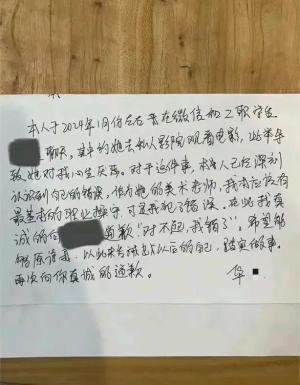 本人于2024年1月份左右 在微信和工职学生
聊天，并约她去私人影院观看电影，此举导
致她对我心生厌恶。对于这件事，本人已经深刻
认识到自己的错误，作为她的美术老师，我本应该有
最基本的职业操守，可是我犯了错误。在此我真
诚的向 道歉“对不起，我错了”。希望能
以后的自己，踏实做事。
再次向你真诚的道歉。
华